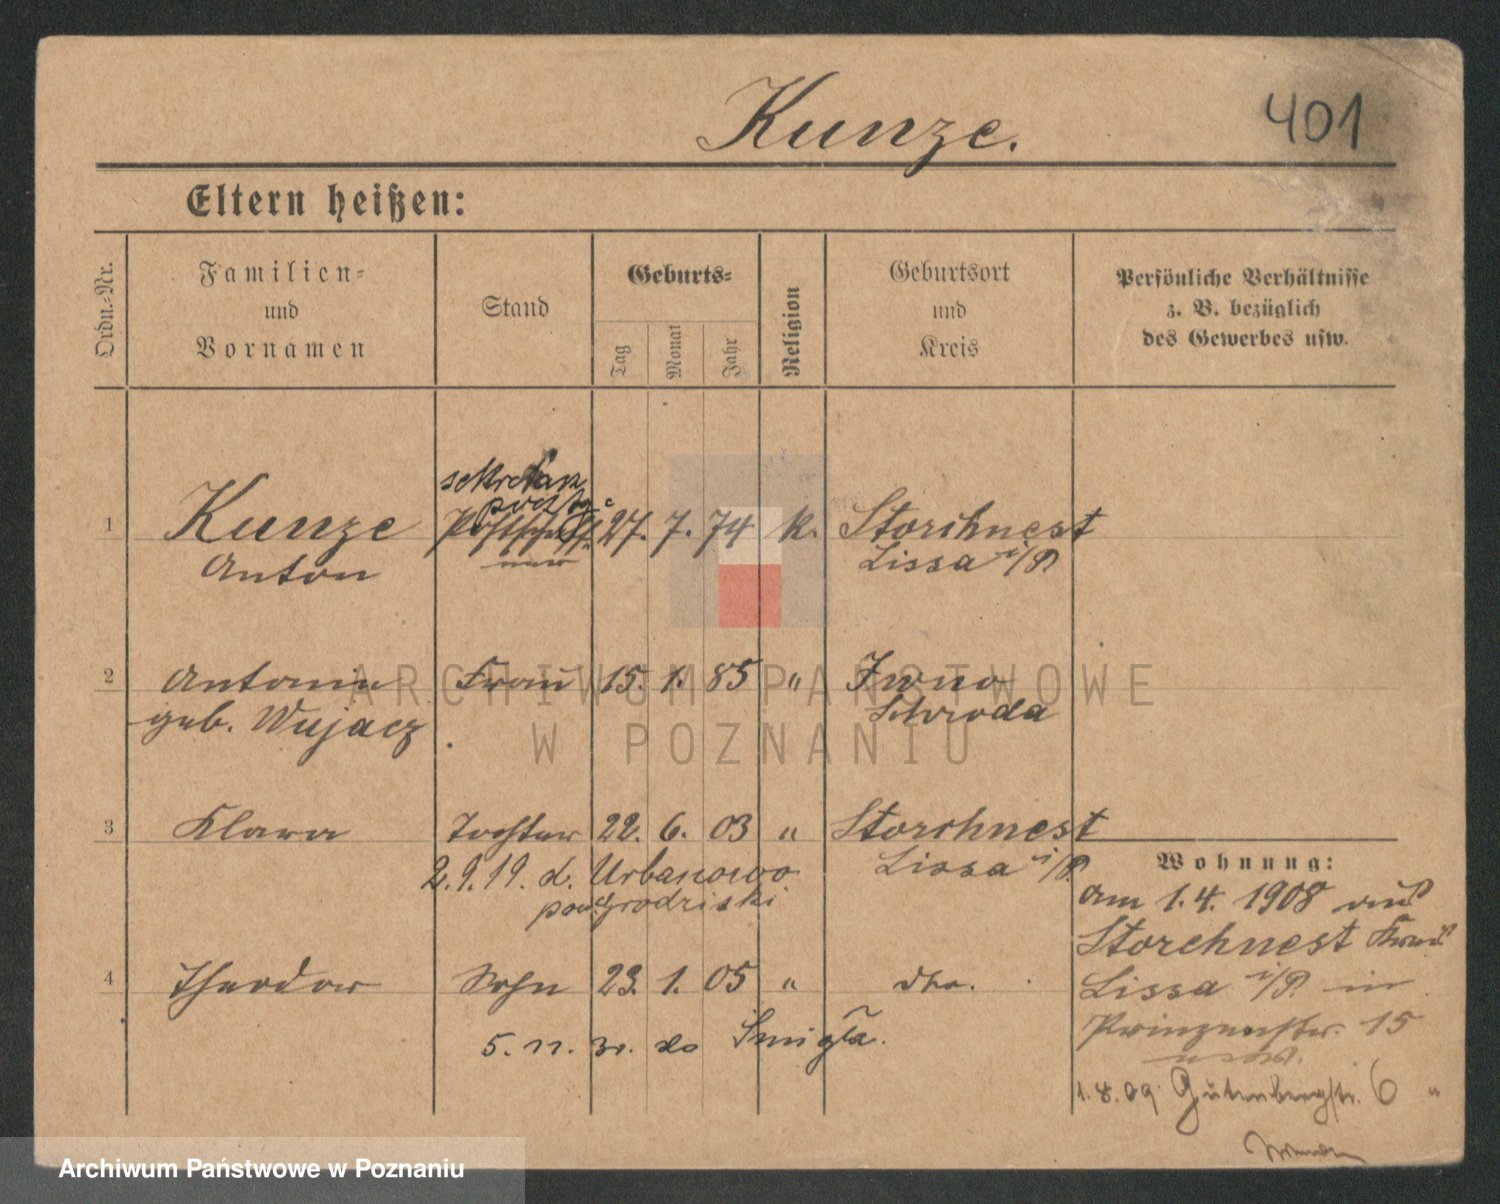 Kunze.
401
Eltern heißen:
Ordn.-Nr.
Familien-
und
Vornamen
Stand
Geburts-
Tag
Monat
Jahr
Religion
Geburtsort
und
Kreis
Persönliche Verhältnisse
z. B. bezüglich
des Gewerbes usw.
sekretarz
poczto
1 Kunze 27. 7. 74 k. Storchnest
Anton Lissa i/P
2 Antonie Frau 15. 1. 85 " Iwno
geb. Wujacz Schroda
3 Klara Tochter 22. 6. 03 " Storchnest
2.9.19. d. Urbanowo Lissa i/P.
pow. Grodziski
Wohnung:
am 1.4. 1908 aus
Storchnest Kreis
4 Theodor Sohn 23. 1. 05 " dto.
Lissa i/P. in
Prinzenstr. 15
5. 11. 30. do Śmigla.
1.8.09 Gutenbergstr. 6 "
ARCHIWUM PAŃSTWOWE
W POZNANIU
Archiwum Państwowe w Poznaniu